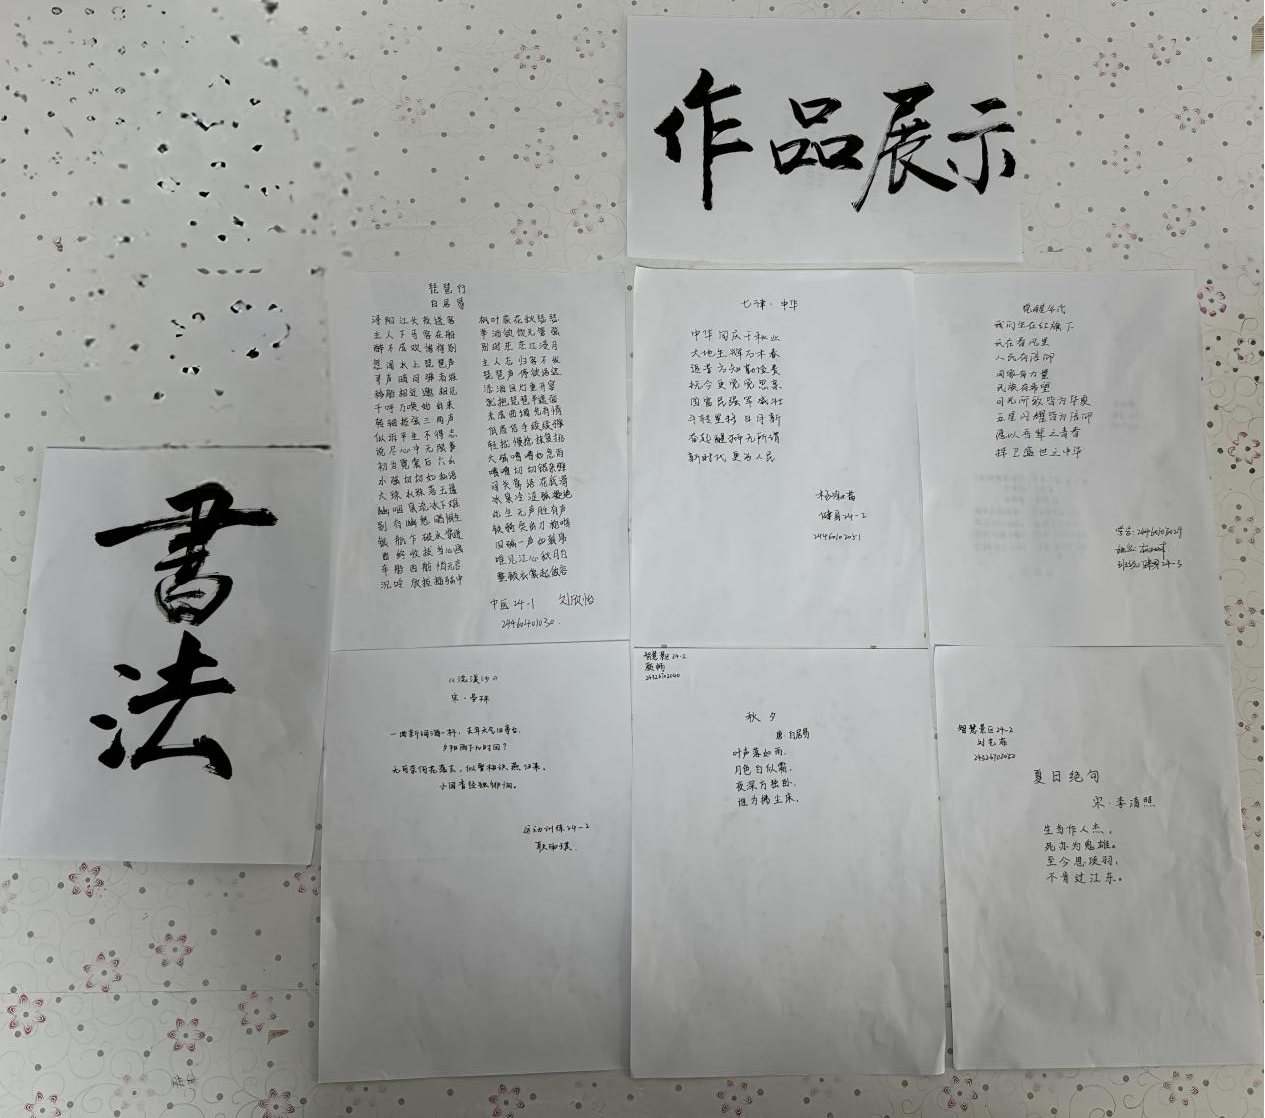 作品展示
書法
琵琶行
白居易
浔阳江头夜送客
主人下马客在船
醉不成欢惨将别
忽闻水上琵琶声
寻声暗问弹者谁
移船相近邀相见
千呼万唤始出来
转轴拨弦三两声
似诉平生不得志
说尽心中无限事
初为霓裳后六幺
小弦切切如私语
大珠小珠落玉盘
幽咽泉流冰下难
别有幽愁暗恨生
银瓶乍破水浆迸
曲终收拨当心画
东船西舫悄无言
沉吟放拨插弦中
枫叶荻花秋瑟瑟
举酒欲饮无管弦
别时茫茫江浸月
主人忘归客不发
琵琶声停欲语迟
添酒回灯重开宴
犹抱琵琶半遮面
未成曲调先有情
低眉信手续续弹
轻拢慢捻抹复挑
大弦嘈嘈如急雨
嘈嘈切切错杂弹
间关莺语花底滑
冰泉冷涩弦凝绝
此时无声胜有声
铁骑突出刀枪鸣
四弦一声如裂帛
唯见江心秋月白
整顿衣裳起敛容
中医24-1 刘欣怡
24460401030.
七律·中华
中华同庆千秋业
大地生辉万木春
返普方知勤俭贵
抚今更觉党恩亲
国富民强军威壮
斗转星移日月新
奋起醒狮无所谓
新时代更为人民
健身24-2
24460103051
觉醒年代
我们坐在红旗下
沐在春风里
人民有信仰
国家有力量
民族有希望
目光所致皆为华夏
五星闪耀皆为信仰
愿以吾辈之青春
捍卫盛世之中华
学号:24460103029
姓名:
班级:健身24-3
《浣溪沙》
宋·晏殊
一曲新词酒一杯,去年天气旧亭台.
夕阳西下几时回?
无可奈何花落去,似曾相识燕归来.
小园香径独徘徊.
运动训练24-2
耿雨琪.
智慧景区24-2
24326102040
秋夕
唐·白居易
叶声落如雨.
月色白似霜.
夜深方独卧.
谁为拂尘床.
智慧景区24-2
24326102032
夏日绝句
宋·李清照
生当作人杰,
死亦为鬼雄。
至今思项羽,
不肯过江东。